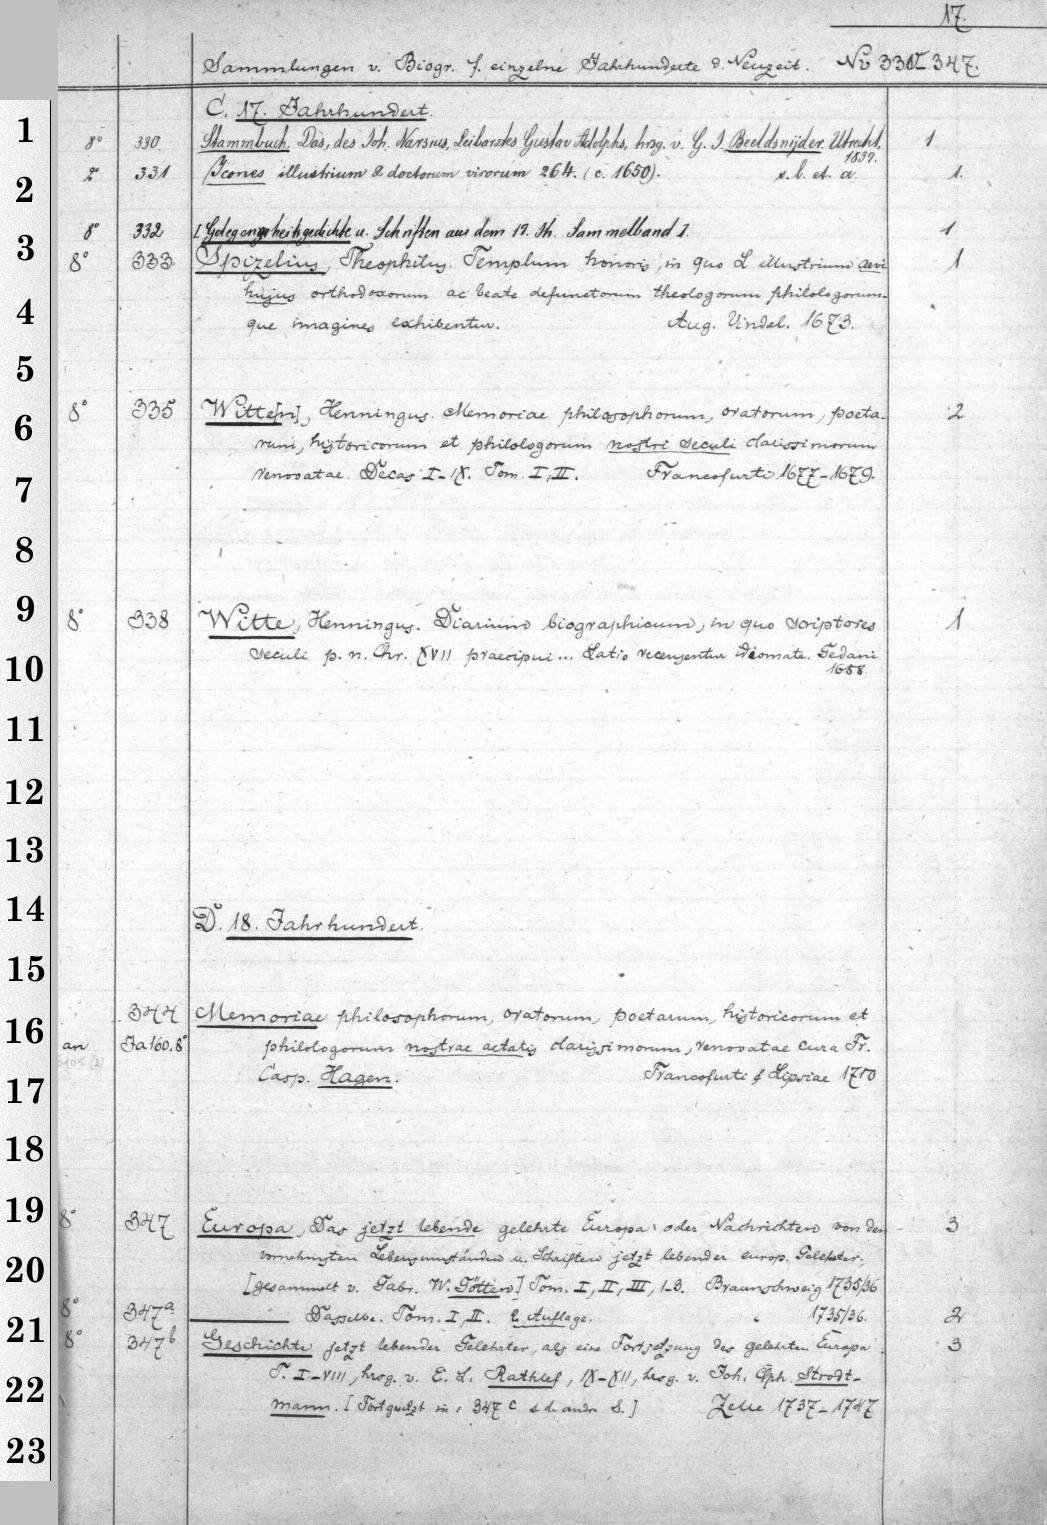 17.
Sammlungen v. Biogr. f. einzelne Jahrhunderte d. Neuzeit. No 330-347.
C. 17. Jahrhundert.
1 8° 330. Stammbuch, Das, des Joh. Narsius, Leibarztes Gustav Adolphs, hrsg. v. G. J. Beeldsnijder. Utrecht. 1
1837.
2 2° 331 Icones illustrium & doctorum virorum 264. (c. 1650). s. l. et. a. 1.
8° 332 [Gelegenheitsgedichte u. Schriften aus dem 17. Jh. Sammelband]. 1
3 8° 333 Spizelius, Theophilus. Templum honoris, in quo L illustrium aevi 1
hujus orthodoxorum ac beate defunctorum theologorum philologorum-
4 que imagines exhibentur. Aug. Vindel. 1673.
5
6 8° 335 Witte[n], Henningus. Memoriae philosophorum, oratorum, poeta- 2
rum, historicorum et philologorum nostri seculi clarissimorum
7 renovatae. Decas I-IX. Tom. I, II. Francofurti 1677-1679.
8
9 8° 338 Witte, Henningus. Diarium biographicum, in quo scriptores 1
10 seculi p. n. Chr. XVII praecipui... Latio recensentur idiomate. Gedani
1688.
11
12
13
14 D. 18. Jahrhundert.
15
16 344 Memoriae philosophorum, oratorum, poetarum, historicorum et
an Ja 160. 8° philologorum nostrae aetatis clarissimorum, renovatae cura Fr.
17 Casp. Hagen. Francofurti & Lipsiae 1710
18
19 8° 347 Europa, Das jetzt lebende gelehrte Europa oder Nachrichten von den 3
vornehmsten Lebensumständen u. Schriften jetzt lebender europ. Gelehrter.
20 [gesammelt v. Gabr. W. Götten] Tom. I, II, III, 1-3. Braunschweig 1735/36
21 8° 347a Dasselbe. Tom. I, II. 2 Auflage. " 1735/36. 2
8° 347b Geschichte jetzt lebender Gelehrter, als eine Fortsetzung des gelehrten Europa. 3
22 T. I-VIII, hrsg. v. E. L. Rathlef, IX-XII, hrsg. v. Joh. Cph. Strodt-
mann. [Fortgesetzt in: 347c s. d. andre S.] Zelle 1737-1747
23